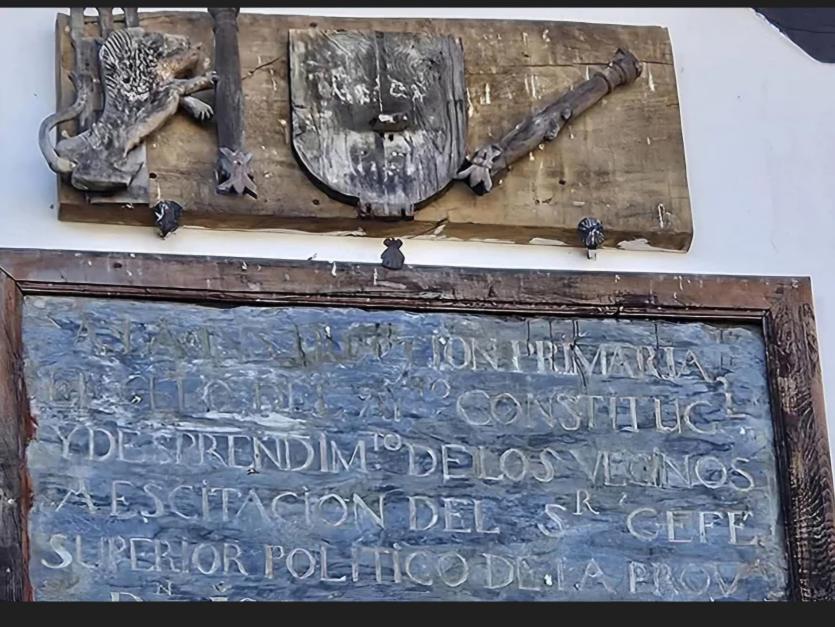 A LA INSTRUCTION PRIMARIA,
CELO DEL AY^TO CONSTITUC^L
Y DESPRENDIM^TO DE LOS VECINOS
A ESCITACION DEL S^R GEFE
SUPERIOR POLITICO DE LA PROV^A
D^N